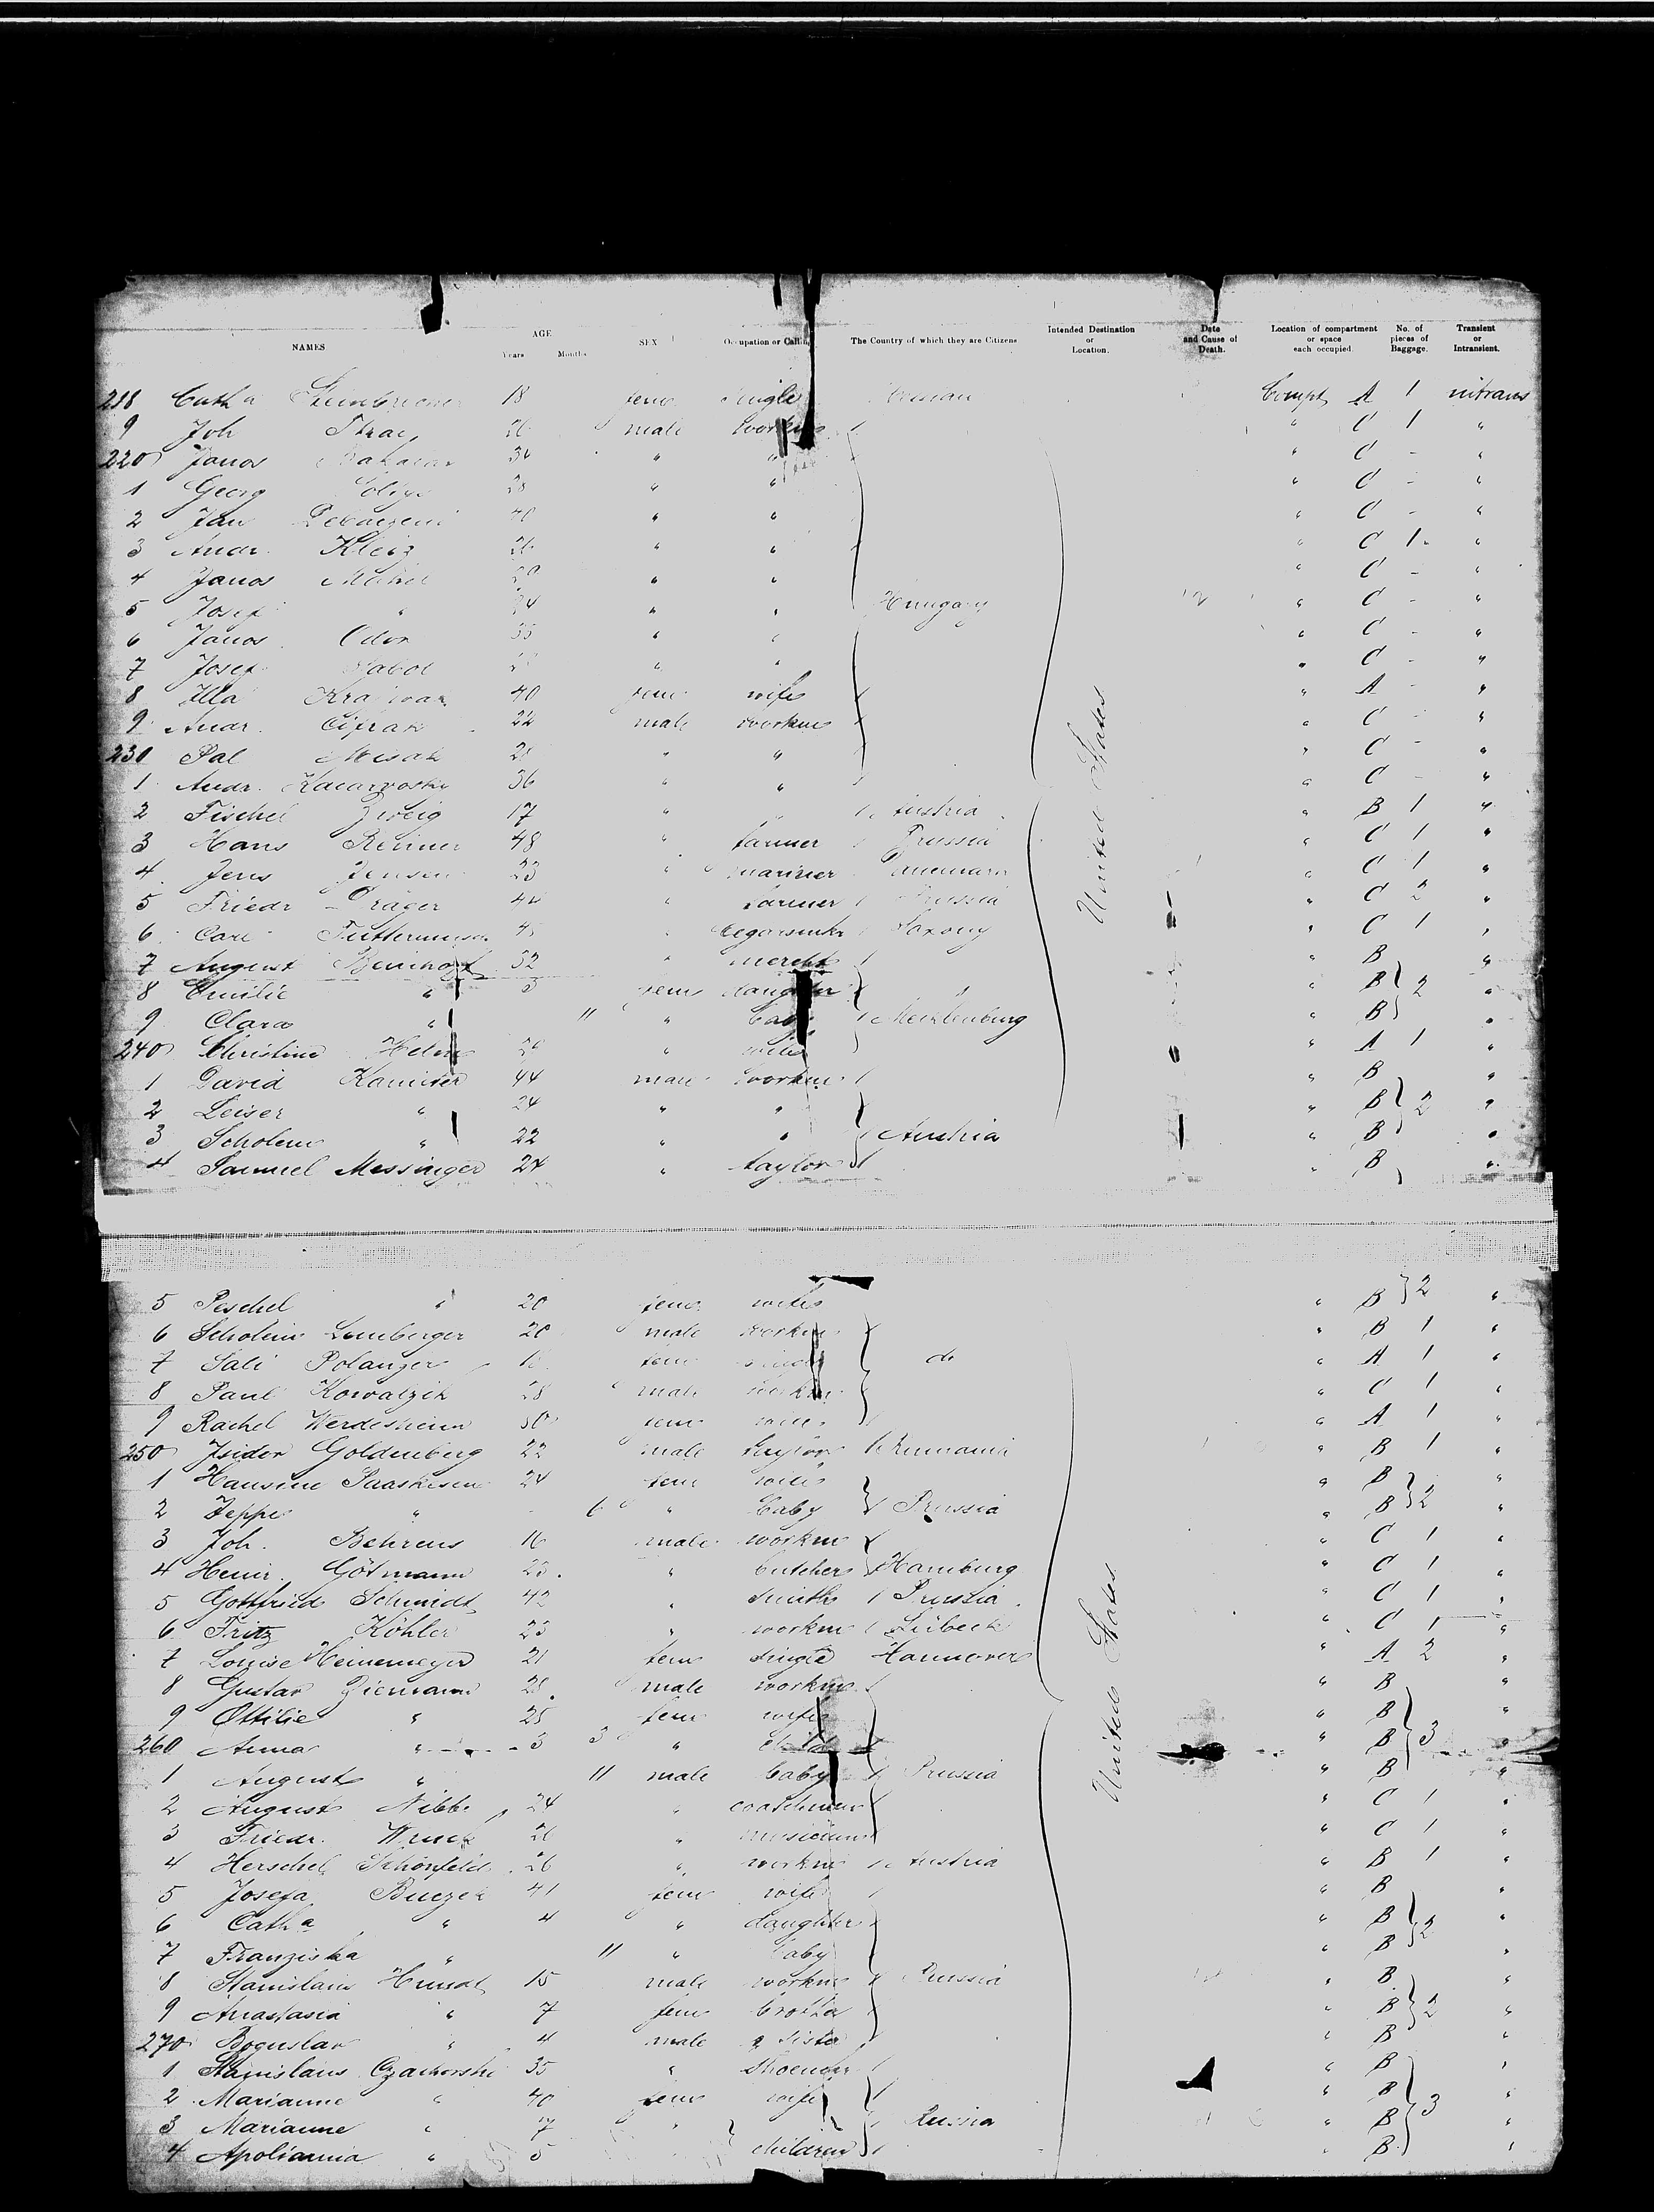 NAMES AGE Years Months SEX Occupation or Calling The Country of which they are Citizens Intended Destination or Location. Date and Cause of Death. Location of compartment or space each occupied. No. of pieces of Baggage. Transient or Intransient.
218 Cath a 18 fem single Compt A 1 intrans
9 Joh 26 male workm " C 1 "
220 Janos 34 " " " C - "
1 Georg 28 " " " C - "
2 Jan 40 " " " C - "
3 Andr. 26 " " " C 1 "
4 Janos " " " C - "
5 Josef " 24 " " Hungary " C - "
6 Janos Odor 35 " " " C - "
7 Josef " " " C - "
8 Illa 40 fem wife " A - "
9 Andr. Cifrak 22 male workm " C - "
230 Pal Misak 28 " " " C - "
1 Andr. 36 " " " C - "
2 Fischel Zweig 17 " " Austria " B 1 "
3 Hans 48 " farmer Prussia " C 1 "
4 Jens Jensen 23 " mariner Danemark " C 1 "
5 Friedr Dräger 44 " farmer Prussia United States " C 2 "
6 Carl " Saxony " C 1 "
7 August 32 " mercht " B "
8 Emilie " 3 fem daughter " " B 2 "
9 Clara " 11 " baby Mecklenburg " B "
240 Christine " wife " A 1 "
1 David 44 male workm " B "
2 Leiser " 24 " " " B 2 "
3 Scholem " 22 " " Austria " B "
4 Samuel Messinger 24 " taylor " B "
5 Peschel " 20 fem wife " B 2 "
6 Scholem 20 male workm " B 1 "
7 Sali Polanzer fem single do " A 1 "
8 Paul Kowalzik 28 male workm " C 1 "
9 Rachel 30 fem wife " A 1 "
250 Isidor Goldenberg 22 male taylor Rumania " B 1 "
1 Hansine 24 fem wife " B "
2 Jeppe " - 6 " baby Prussia " B 2 "
3 Joh. Behrens 16 male workm " C 1 "
4 Heinr. Götmann 23 " butcher Hamburg " C 1 "
5 Gottfried Schmidt 42 " smith Prussia " C 1 "
6 Fritz Köhler 23 " workm Lübeck " C 1 "
7 Louise Heinemeyer 21 fem single Hannover " A 2 "
8 Gustav Ziemann 28 male workm United States " B "
9 Ottilie " 25 fem wife " B "
260 Anna " 3 3 " child " B 3 "
1 August " 11 male baby Prussia " B "
2 August Nibbe 24 " coachman " C 1 "
3 Friedr. Wruck 26 " musician " C 1 "
4 Herschel Schönfeld 26 " workm Austria " B 1 "
5 Josefa Buczek 41 fem wife " B "
6 Cath a " 4 " daughter " B 2 "
7 Franziska " 11 " baby " B "
8 Stanislaus Hundt 15 male workm Prussia " B "
9 Anastasia " 7 fem brother " B 2 "
270 Boguslav " 4 male & sister " B "
1 Stanislaus Czachorski 35 " shoemkr " B "
2 Marianne " 40 fem wife " B 3 "
3 Marianne " 7 " Russia " B "
4 Apoliannia " 5 children " B "